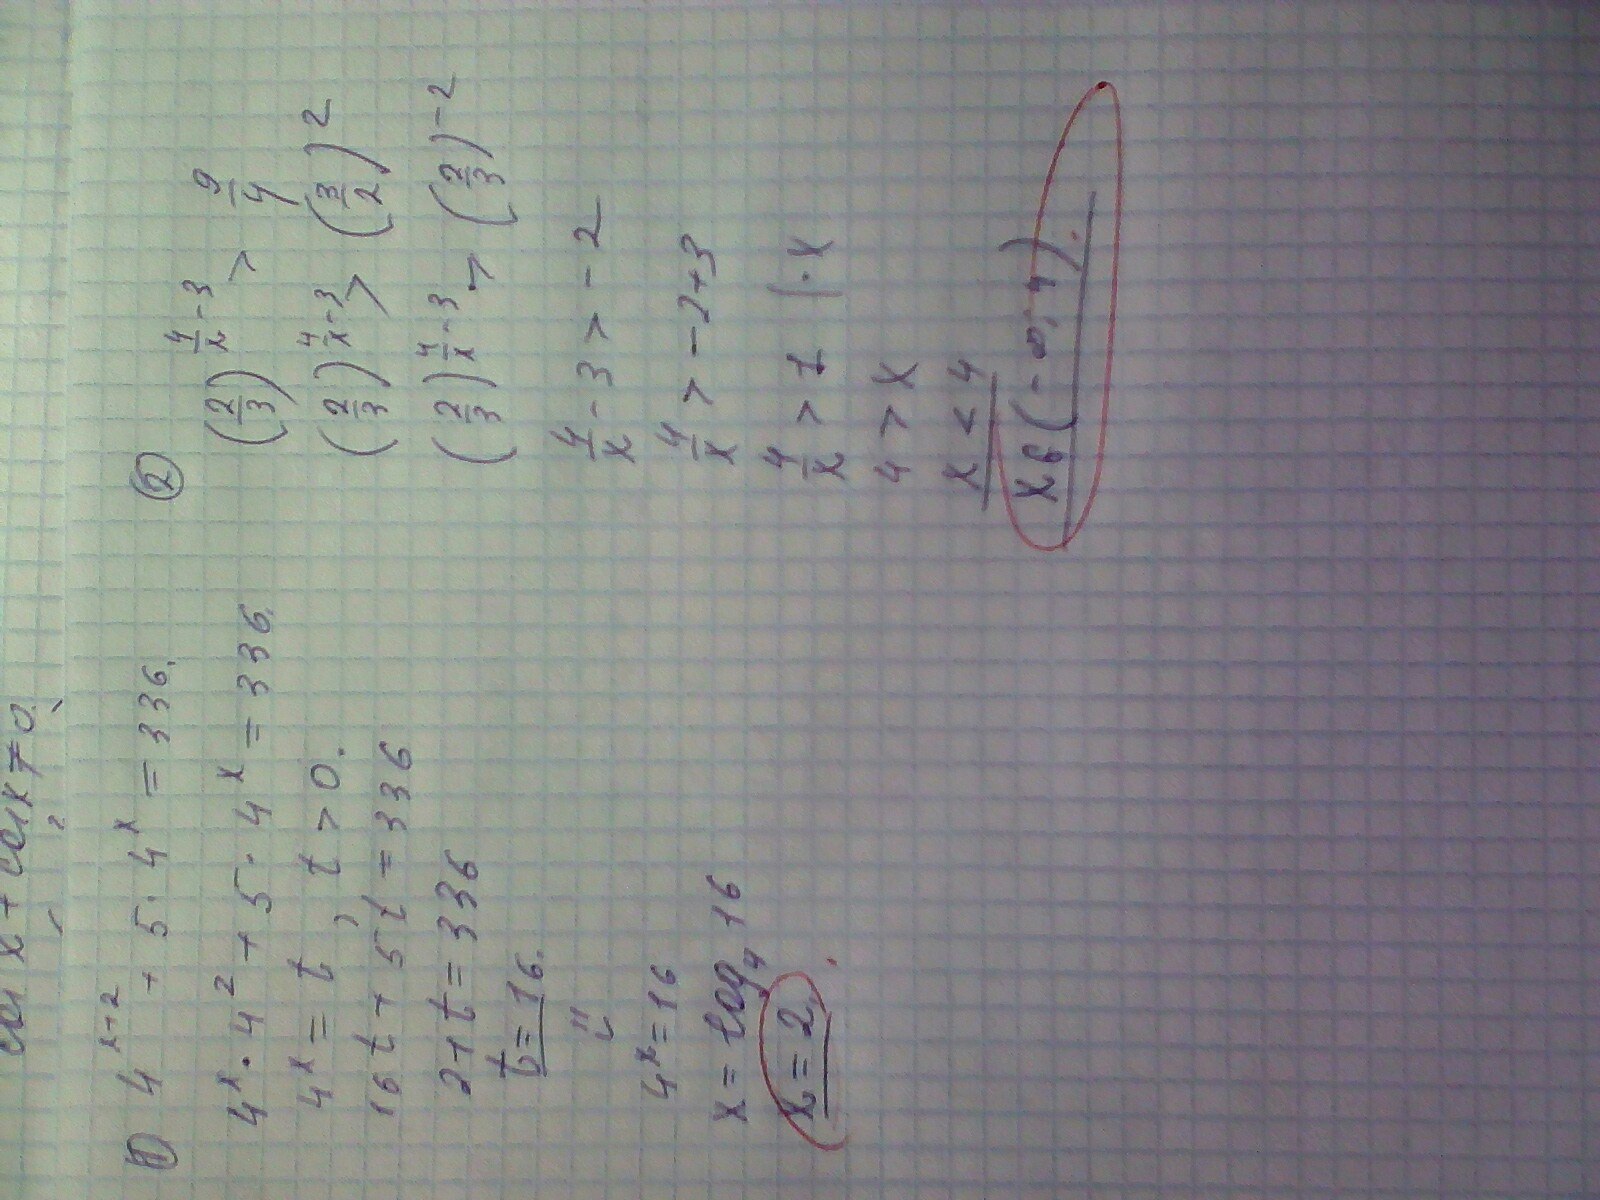 x + cos x ≠ 0
① 4^{x+2} + 5·4^x = 336.
4^x·4^2 + 5·4^x = 336.
4^x = t, t > 0.
16t + 5t = 336
21t = 336
t = 16.
4^x = 16
x = log_4 16
x = 2.
② (2/3)^{4/x-3} > 9/4
(2/3)^{4/x-3} > (3/2)^2
(2/3)^{4/x-3} > (2/3)^{-2}
4/x - 3 > -2
4/x > -2+3
4/x > 1 |·x
4 > x
x < 4
x ∈ (-∞; 4).